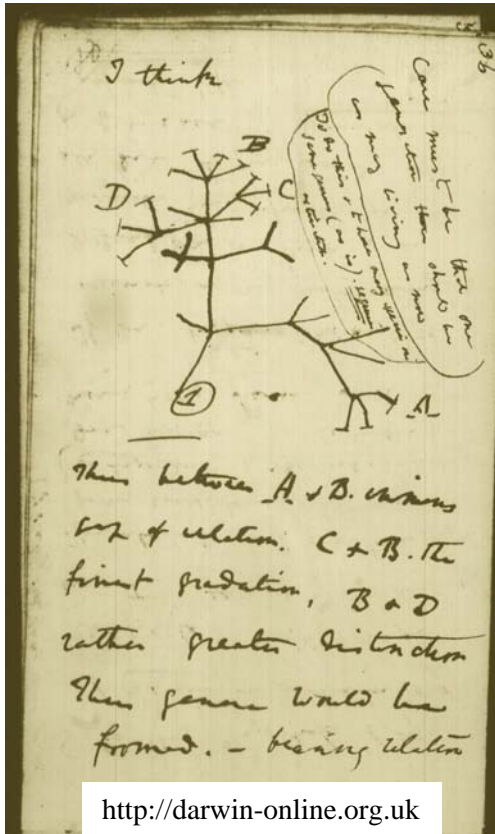 36
I think
Case must be that one
generation then should be
as many living as now
To do this & to have many species in
same genus (as is). requires
extinction.
B
D
C
A
1
Thus between A & B. immens
gap of relation. C & B. the
finest gradation, B & D
rather greater distinction
Thus genera would be
formed. — bearing relation
http://darwin-online.org.uk